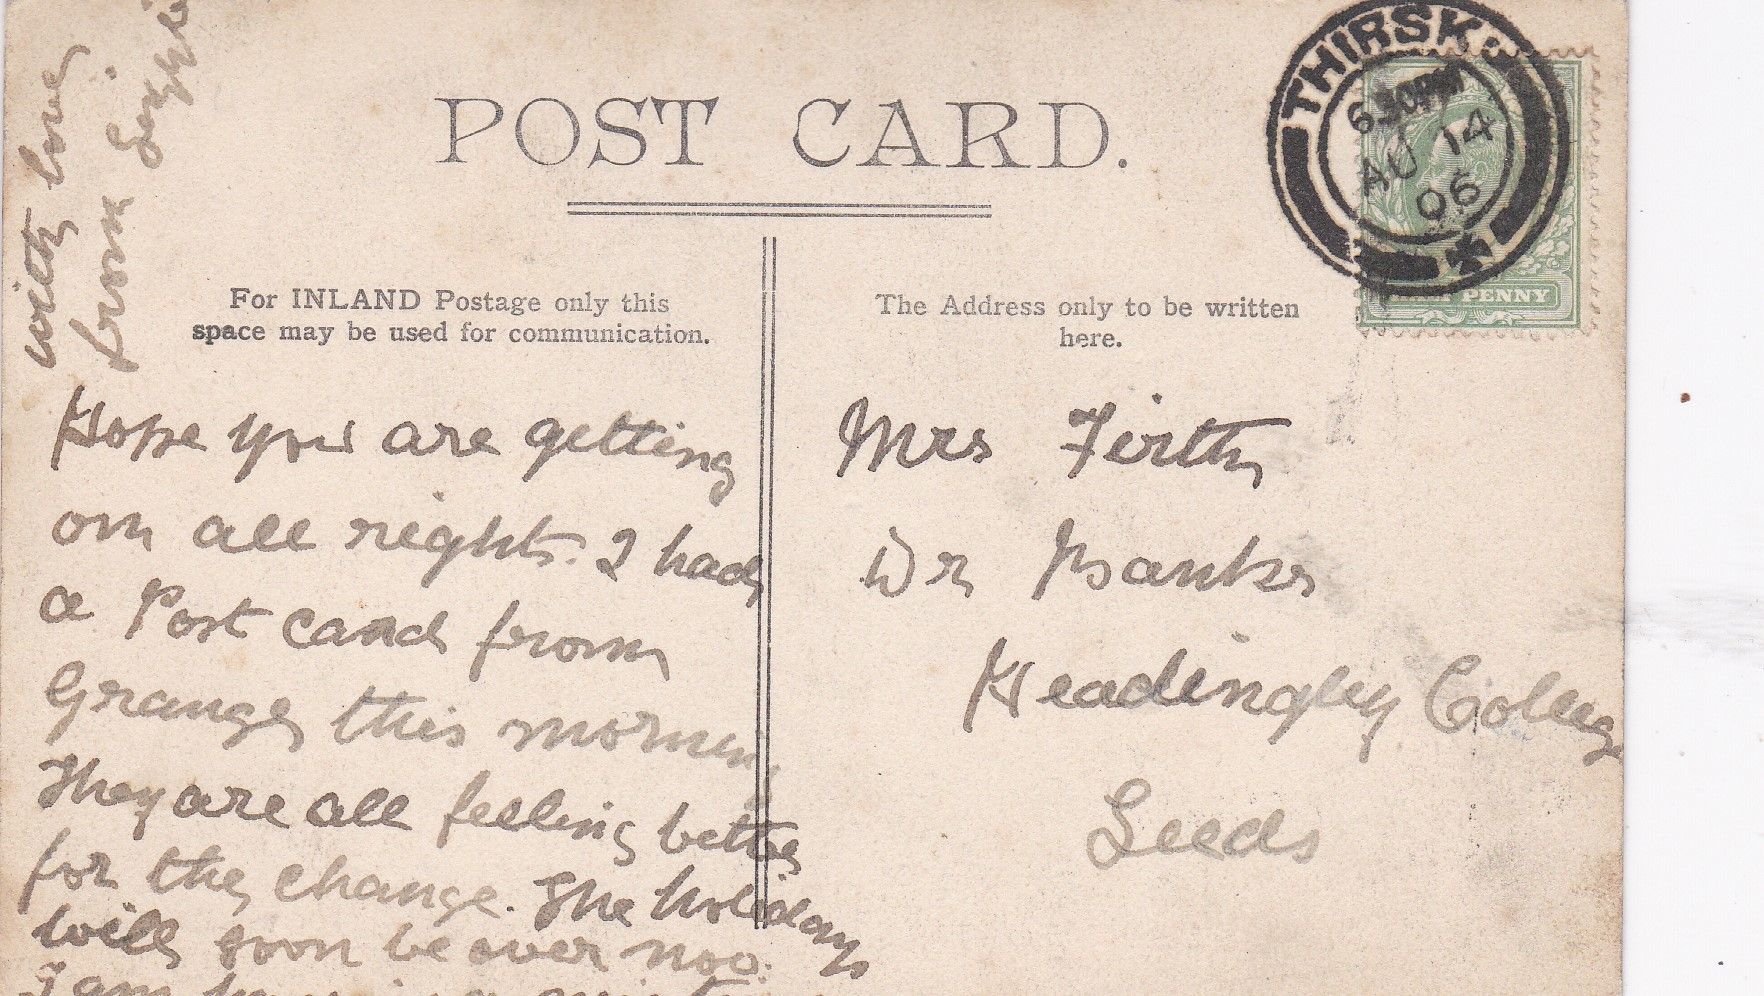 POST CARD.
THIRSK
6.30PM
AU 14
06
PENNY
For INLAND Postage only this
space may be used for communication.
The Address only to be written
here.
with love
from
Hope you are getting
on all right. I had
a Post card from
Grange this morning
They are all feeling better
for the change. The holidays
will soon be over now.
I am
Mrs Firth
Dr Banks
Headingley College
Leeds